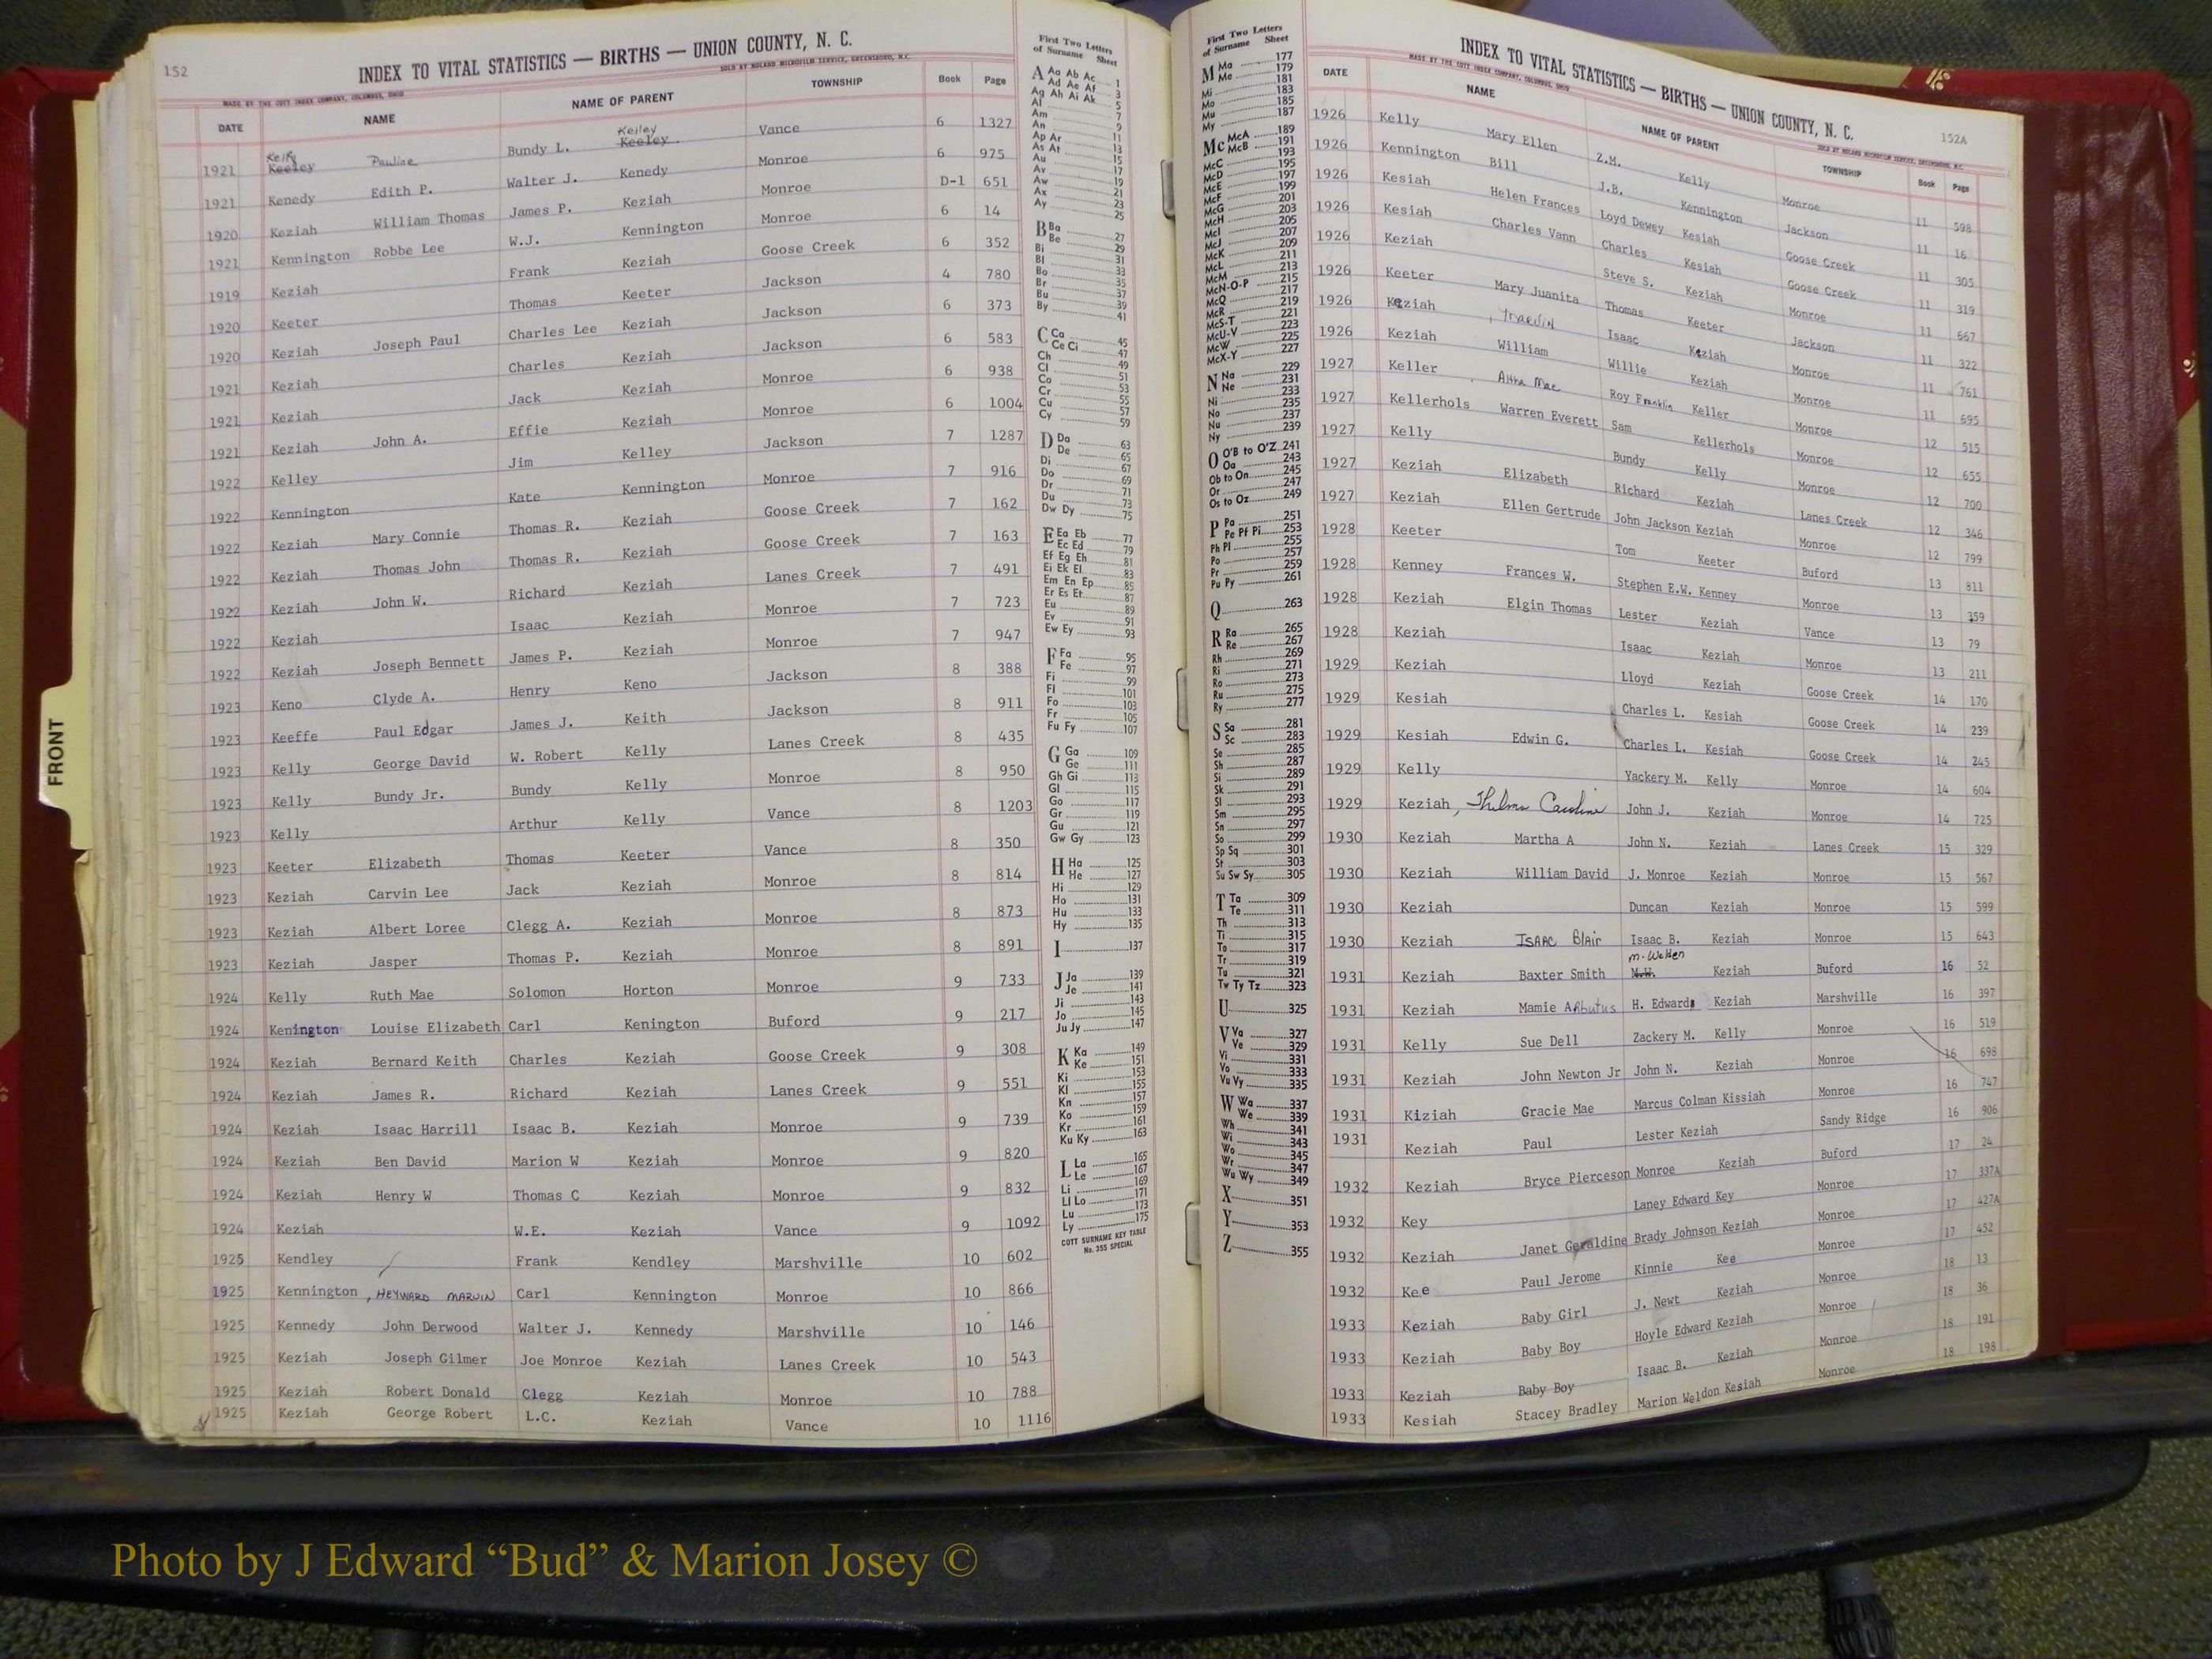 152
INDEX TO VITAL STATISTICS — BIRTHS — UNION COUNTY, N. C.
MADE BY THE COTT INDEX COMPANY, COLUMBUS, OHIO SOLD BY ROLAND MICROFILM SERVICE, GREENSBORO, N.C.
DATE NAME NAME OF PARENT TOWNSHIP Book Page
1921 Kelly Keeley Pauline Bundy L. Kelley Keeley Vance 6 1327
1921 Kenedy Edith P. Walter J. Kenedy Monroe 6 975
1920 Keziah William Thomas James P. Keziah Monroe D-1 651
1921 Kennington Robbe Lee W.J. Kennington Monroe 6 14
1919 Keziah Frank Keziah Goose Creek 6 352
1920 Keeter Thomas Keeter Jackson 4 780
1920 Keziah Joseph Paul Charles Lee Keziah Jackson 6 373
1921 Keziah Charles Keziah Jackson 6 583
1921 Keziah Jack Keziah Monroe 6 938
1921 Keziah John A. Effie Keziah Monroe 6 1004
1922 Kelley Jim Kelley Jackson 7 1287
1922 Kennington Kate Kennington Monroe 7 916
1922 Keziah Mary Connie Thomas R. Keziah Goose Creek 7 162
1922 Keziah Thomas John Thomas R. Keziah Goose Creek 7 163
1922 Keziah John W. Richard Keziah Lanes Creek 7 491
1922 Keziah Isaac Keziah Monroe 7 723
1922 Keziah Joseph Bennett James P. Keziah Monroe 7 947
1923 Keno Clyde A. Henry Keno Jackson 8 388
1923 Keeffe Paul Edgar James J. Keith Jackson 8 911
1923 Kelly George David W. Robert Kelly Lanes Creek 8 435
1923 Kelly Bundy Jr. Bundy Kelly Monroe 8 950
1923 Kelly Arthur Kelly Vance 8 1203
1923 Keeter Elizabeth Thomas Keeter Vance 8 350
1923 Keziah Carvin Lee Jack Keziah Monroe 8 814
1923 Keziah Albert Loree Clegg A. Keziah Monroe 8 873
1923 Keziah Jasper Thomas P. Keziah Monroe 8 891
1924 Kelly Ruth Mae Solomon Horton Monroe 9 733
1924 Kenington Louise Elizabeth Carl Kenington Buford 9 217
1924 Keziah Bernard Keith Charles Keziah Goose Creek 9 308
1924 Keziah James R. Richard Keziah Lanes Creek 9 551
1924 Keziah Isaac Harrill Isaac B. Keziah Monroe 9 739
1924 Keziah Ben David Marion W Keziah Monroe 9 820
1924 Keziah Henry W Thomas C Keziah Monroe 9 832
1924 Keziah W.E. Keziah Vance 9 1092
1925 Kendley Frank Kendley Marshville 10 602
1925 Kennington, HEYWARD MARVIN Carl Kennington Monroe 10 866
1925 Kennedy John Derwood Walter J. Kennedy Marshville 10 146
1925 Keziah Joseph Gilmer Joe Monroe Keziah Lanes Creek 10 543
1925 Keziah Robert Donald Clegg Keziah Monroe 10 788
1925 Keziah George Robert L.C. Keziah Vance 10 1116
FRONT
First Two Letters
of Surname Sheet
A Aa Ab Ac 1
Ad Ae Af 3
Ag Ah Ai Ak 5
Al 7
Am 9
An 11
Ap Ar 13
As At 15
Au 17
Av 19
Aw 21
Ax 23
Ay 25
B Ba 27
Be 29
Bi 31
Bl 33
Bo 35
Br 37
Bu 39
By 41
C Ca 45
Ce Ci 47
Ch 49
Cl 51
Co 53
Cr 55
Cu 57
Cy 59
D Da 63
De 65
Di 67
Do 69
Dr 71
Du 73
Dw Dy 75
E Ea Eb 77
Ec Ed 79
Ef Eg Eh 81
Ei Ek El 83
Em En Ep 85
Er Es Et 87
Eu 89
Ev 91
Ew Ey 93
F Fa 95
Fe 97
Fi 99
Fl 101
Fo 103
Fr 105
Fu Fy 107
G Ga 109
Ge 111
Gh Gi 113
Gl 115
Go 117
Gr 119
Gu 121
Gw Gy 123
H Ha 125
He 127
Hi 129
Ho 131
Hu 133
Hy 135
I 137
J Ja 139
Je 141
Ji 143
Jo 145
Ju Jy 147
K Ka 149
Ke 151
Ki 153
Kl 155
Kn 157
Ko 159
Kr 161
Ku Ky 163
L La 165
Le 167
Li 169
Ll Lo 171
Lu 173
Ly 175
COTT SURNAME KEY TABLE
No. 355 SPECIAL
First Two Letters
of Surname Sheet
M Ma 177
Me 179
Mi 181
Mo 183
Mu 185
My 187
Mc McA 189
McB 191
McC 193
McD 195
McE 197
McF 199
McG 201
McH 203
McI 205
McJ 207
McK 209
McL 211
McM 213
McN-O-P 215
McQ 217
McR 219
McS-T 221
McU-V 223
McW 225
McX-Y 227
N Na 229
Ne 231
Ni 233
No 235
Nu 237
Ny 239
O O'B to O'Z 241
Oa 243
Ob to On 245
Or 247
Os to Oz 249
P Pa 251
Pe Pf Pi 253
Ph Pl 255
Po 257
Pr 259
Pu Py 261
Q 263
R Ra 265
Re 267
Rh 269
Ri 271
Ro 273
Ru 275
Ry 277
S Sa 281
Sc 283
Se 285
Sh 287
Si 289
Sk 291
Sl 293
Sm 295
Sn 297
So 299
Sp Sq 301
St 303
Su Sw Sy 305
T Ta 309
Te 311
Th 313
Ti 315
To 317
Tr 319
Tu 321
Tw Ty Tz 323
U 325
V Va 327
Ve 329
Vi 331
Vo 333
Vu Vy 335
W Wa 337
We 339
Wh 341
Wi 343
Wo 345
Wr 347
Wu Wy 349
X 351
Y 353
Z 355
INDEX TO VITAL STATISTICS — BIRTHS — UNION COUNTY, N. C.
152A
MADE BY THE COTT INDEX COMPANY, COLUMBUS, OHIO SOLD BY ROLAND MICROFILM SERVICE, GREENSBORO, N.C.
DATE NAME NAME OF PARENT TOWNSHIP Book Page
1926 Kelly Mary Ellen Z.M. Kelly Monroe 11 598
1926 Kennington Bill J.B. Kennington Jackson 11 16
1926 Kesiah Helen Frances Loyd Dewey Kesiah Goose Creek 11 305
1926 Kesiah Charles Vann Charles Kesiah Goose Creek 11 319
1926 Keziah Steve S. Keziah Monroe 11 667
1926 Keeter Mary Juanita Thomas Keeter Jackson 11 322
1926 Keziah, Marvin Isaac Keziah Monroe 11 761
1926 Keziah William Willie Keziah Monroe 11 695
1927 Keller Altha Mae Roy Franklin Keller Monroe 12 515
1927 Kellerhols Warren Everett Sam Kellerhols Monroe 12 655
1927 Kelly Bundy Kelly Monroe 12 700
1927 Keziah Elizabeth Richard Keziah Lanes Creek 12 346
1927 Keziah Ellen Gertrude John Jackson Keziah Monroe 12 799
1928 Keeter Tom Keeter Buford 13 811
1928 Kenney Frances W. Stephen E.W. Kenney Monroe 13 359
1928 Keziah Elgin Thomas Lester Keziah Vance 13 79
1928 Keziah Isaac Keziah Monroe 13 211
1929 Keziah Lloyd Keziah Goose Creek 14 170
1929 Kesiah Charles L. Kesiah Goose Creek 14 239
1929 Kesiah Edwin G. Charles L. Kesiah Goose Creek 14 245
1929 Kelly Yackery M. Kelly Monroe 14 604
1929 Keziah, Thelma Caroline John J. Keziah Monroe 14 725
1930 Keziah Martha A John N. Keziah Lanes Creek 15 329
1930 Keziah William David J. Monroe Keziah Monroe 15 567
1930 Keziah Duncan Keziah Monroe 15 599
1930 Keziah ISAAC Blair Isaac B. Keziah Monroe 15 643
1931 Keziah Baxter Smith M. Welden M.W. Keziah Buford 16 52
1931 Keziah Mamie Arbutus H. Edwards Keziah Marshville 16 397
1931 Kelly Sue Dell Zackery M. Kelly Monroe 16 519
1931 Keziah John Newton Jr John N. Keziah Monroe 16 698
1931 Kiziah Gracie Mae Marcus Colman Kissiah Monroe 16 747
1931 Keziah Paul Lester Keziah Sandy Ridge 16 906
1932 Keziah Bryce Pierceson Monroe Keziah Buford 17 24
1932 Key Laney Edward Key Monroe 17 337A
1932 Keziah Janet Geraldine Brady Johnson Keziah Monroe 17 427A
1932 Kee Paul Jerome Kinnie Kee Monroe 17 452
1933 Keziah Baby Girl J. Newt Keziah Monroe 18 13
1933 Keziah Baby Boy Hoyle Edward Keziah Monroe 18 36
1933 Keziah Baby Boy Isaac B. Keziah Monroe 18 191
1933 Kesiah Stacey Bradley Marion Weldon Kesiah Monroe 18 198
Photo by J Edward “Bud” & Marion Josey ©